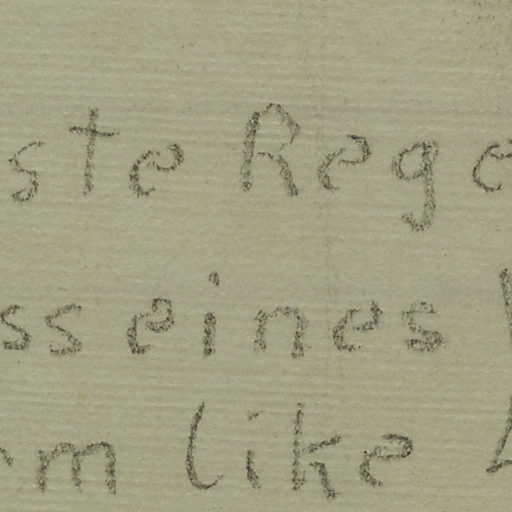 ste Rege
ss eines
m like